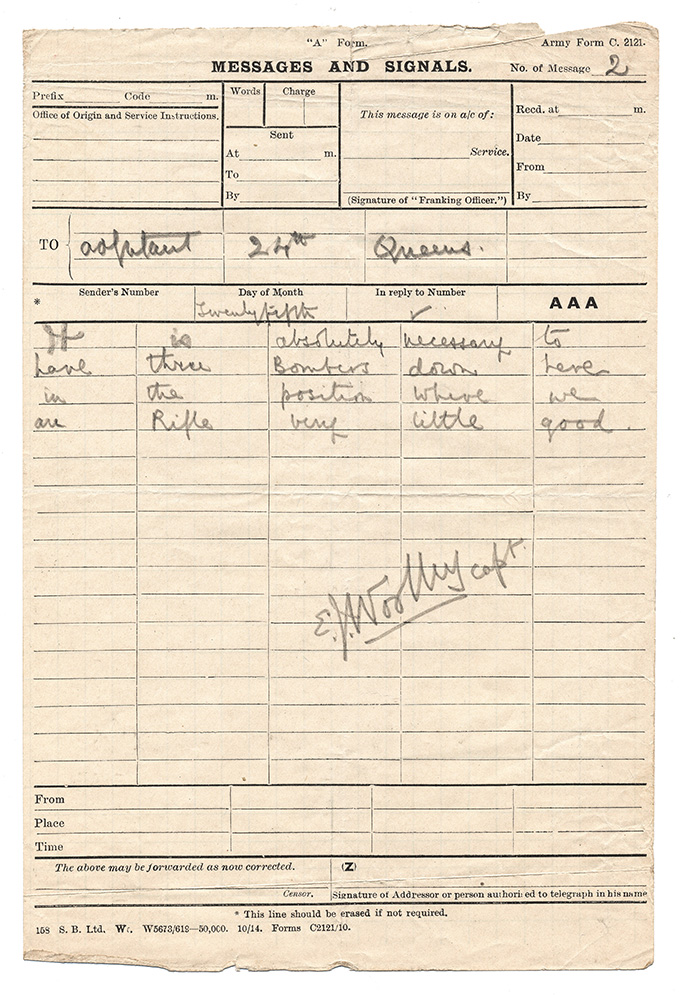 "A" Form. Army Form C. 2121.
MESSAGES AND SIGNALS. No. of Message 2
Prefix Code m. Words Charge
Office of Origin and Service Instructions.
Sent
At m.
To
By
This message is on a/c of:
Service.
(Signature of "Franking Officer.")
Recd. at m.
Date
From
By
TO adjutant 24th Queens.
* Sender's Number Day of Month In reply to Number AAA
Twentyfifth ✓
It is absolutely necessary to
have three Bombers down here
in the position where we
are Rifle very little good.
E.J. Woolley capt.
From
Place
Time
The above may be forwarded as now corrected. (Z)
Censor. Signature of Addressor or person authorised to telegraph in his name
* This line should be erased if not required.
158 S. B. Ltd. Wt. W5673/619—50,000. 10/14. Forms C2121/10.